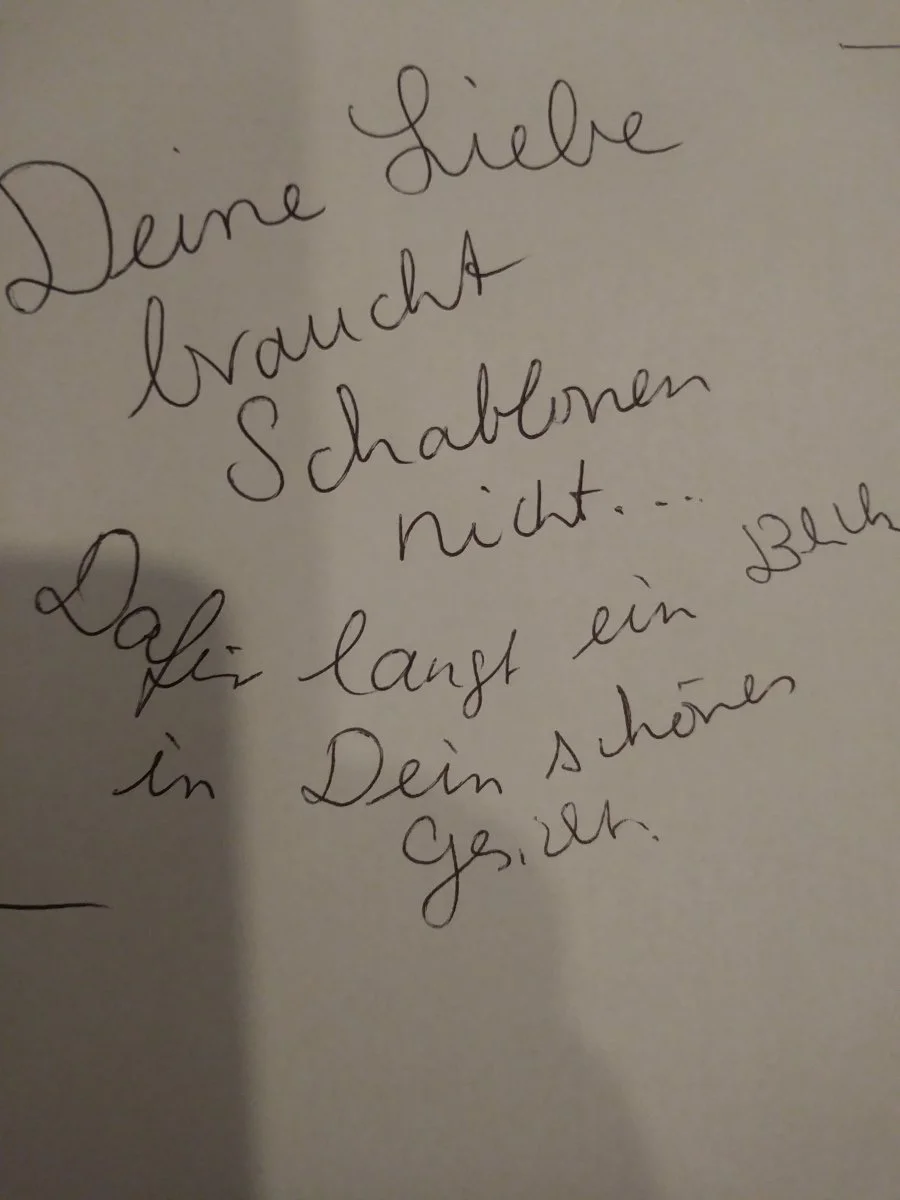 Deine Liebe
braucht
Schablonen
nicht....
Dafür langt ein Blick
in Dein schönes
Gesicht.